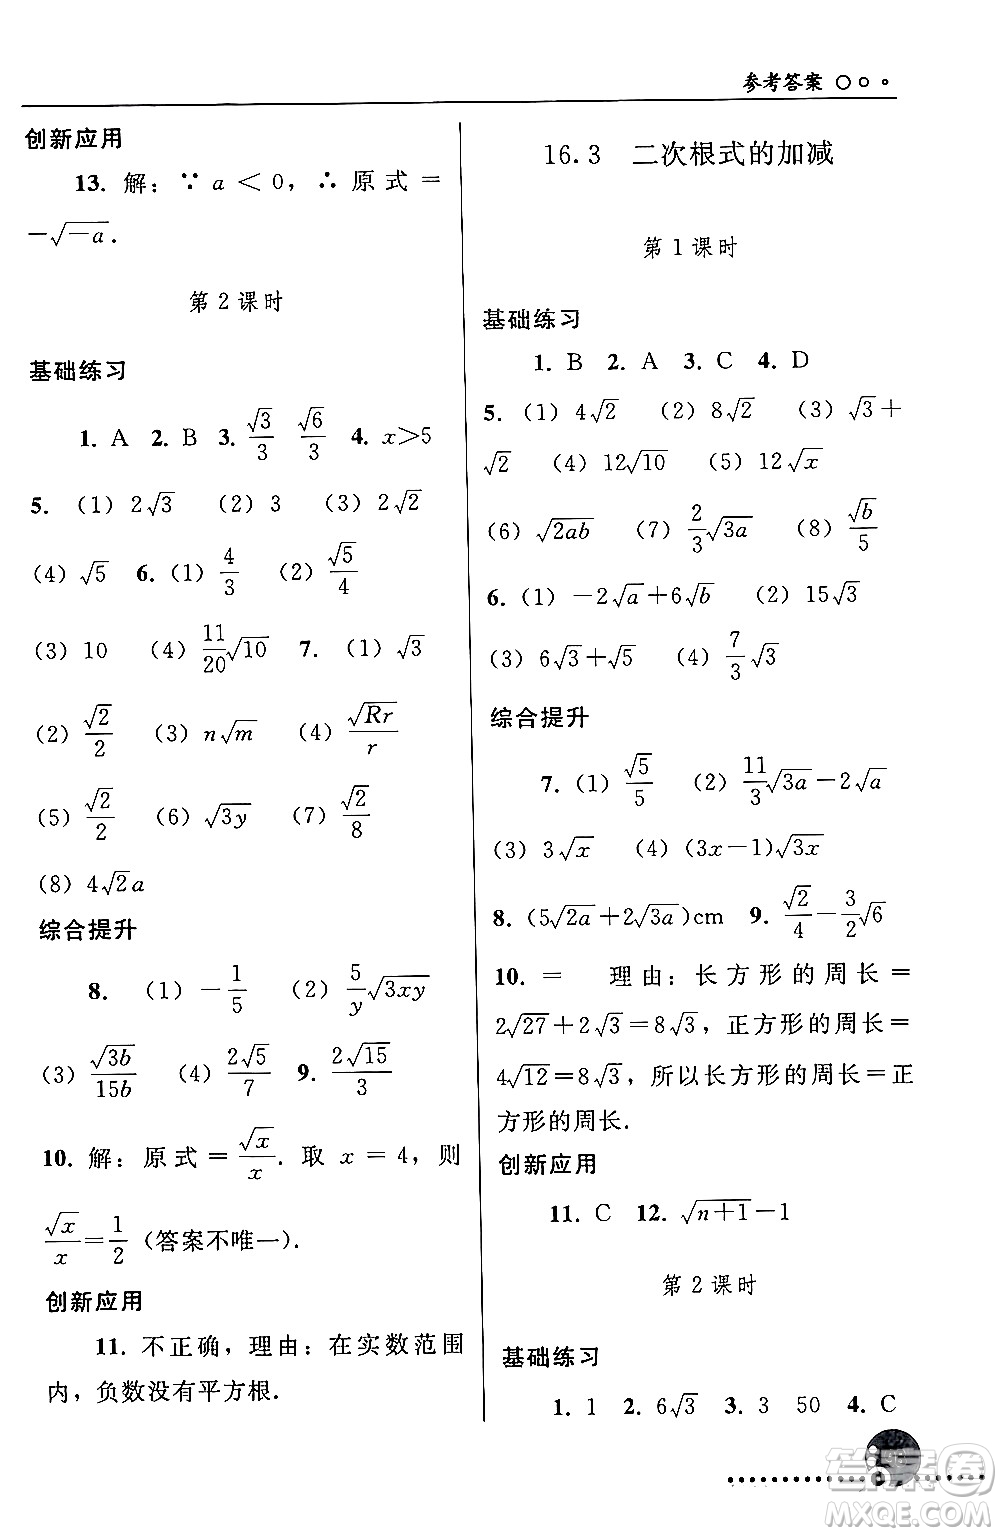 参考答案
创新应用
13. 解：∵ a＜0，∴ 原式＝
－√(－a).
第 2 课时
基础练习
1. A 2. B 3. √3/3 √6/3 4. x＞5
5. （1）2√3 （2）3 （3）2√2
（4）√5 6. （1）4/3 （2）√5/4
（3）10 （4）11/20√10 7. （1）√3
（2）√2/2 （3）n√m （4）√(Rr)/r
（5）√2/2 （6）√(3y) （7）√2/8
（8）4√2a
综合提升
8. （1）－1/5 （2）5/y√(3xy)
（3）√(3b)/15b （4）2√5/7 9. 2√15/3
10. 解：原式＝√x/x. 取 x＝4，则
√x/x＝1/2（答案不唯一）.
创新应用
11. 不正确，理由：在实数范围
内，负数没有平方根.
16.3 二次根式的加减
第 1 课时
基础练习
1. B 2. A 3. C 4. D
5. （1）4√2 （2）8√2 （3）√3＋
√2 （4）12√10 （5）12√x
（6）√(2ab) （7）2/3√(3a) （8）√b/5
6. （1）－2√a＋6√b （2）15√3
（3）6√3＋√5 （4）7/3√3
综合提升
7. （1）√5/5 （2）11/3√(3a)－2√a
（3）3√x （4）（3x－1）√(3x)
8. （5√(2a)＋2√(3a)）cm 9. √2/4－3/2√6
10. ＝ 理由：长方形的周长＝
2√27＋2√3＝8√3，正方形的周长＝
4√12＝8√3，所以长方形的周长＝正
方形的周长.
创新应用
11. C 12. √(n＋1)－1
第 2 课时
基础练习
1. 1 2. 6√3 3. 3 50 4. C
答案卷
MXQE.COM